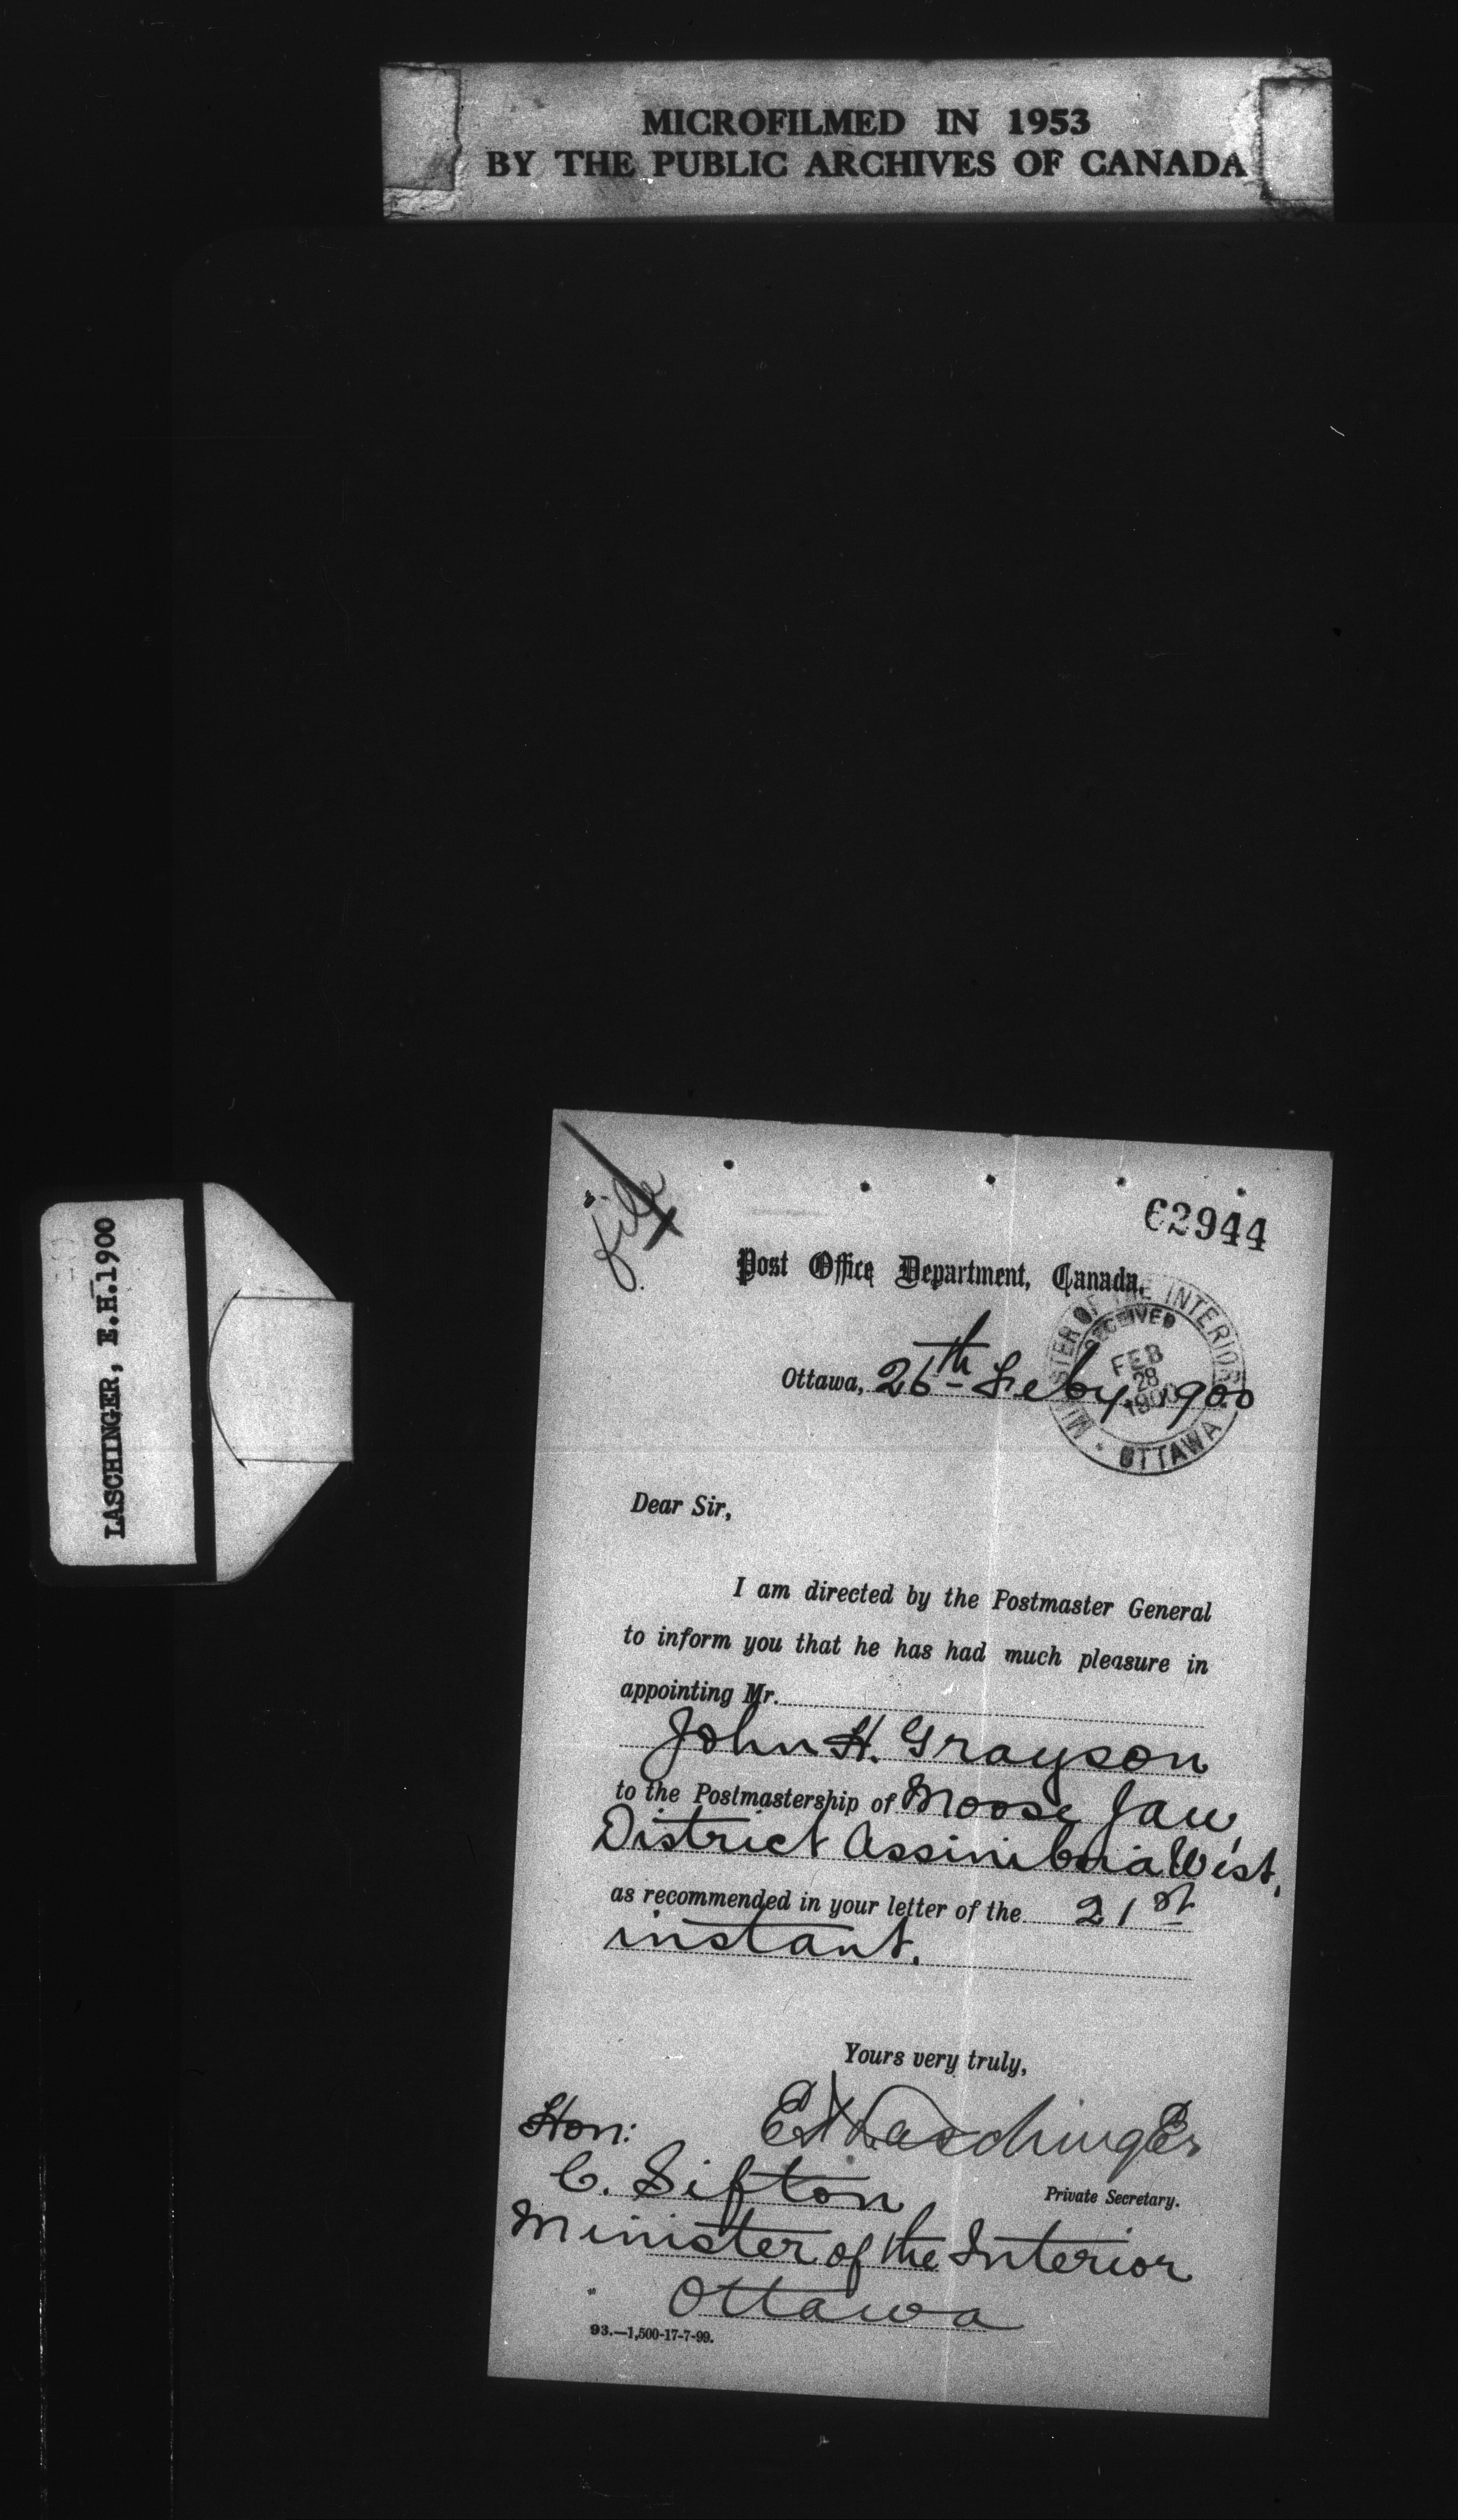 MICROFILMED IN 1953
BY THE PUBLIC ARCHIVES OF CANADA
LASCHINGER, E.H. 1900
file
62944
Post Office Department, Canada,
MINISTER OF THE INTERIOR
RECEIVED
FEB
28
1900
OTTAWA
Ottawa, 26th Feby 1900
Dear Sir,
I am directed by the Postmaster General
to inform you that he has had much pleasure in
appointing Mr.
John H. Grayson
to the Postmastership of Moose Jaw,
District Assiniboia West,
as recommended in your letter of the 21st
instant.
Yours very truly,
EH Laschinger
Private Secretary.
Hon:
C. Sifton
Minister of the Interior
Ottawa
93.—1,500-17-7-99.